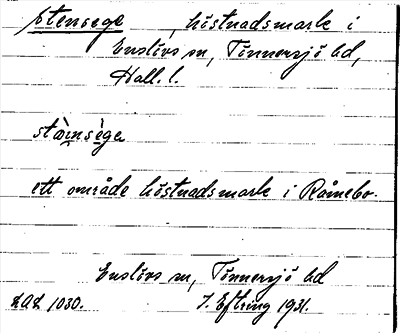 Stensege , höstnadsmark i
Enslövs sn, Tönnersjö hd,
Hall. l.
stæ̀insège
ett område höstnadsmark i Råmebo.
Enslövs sn, Tönnersjö hd
LAL 1030. J. Eftring 1931.